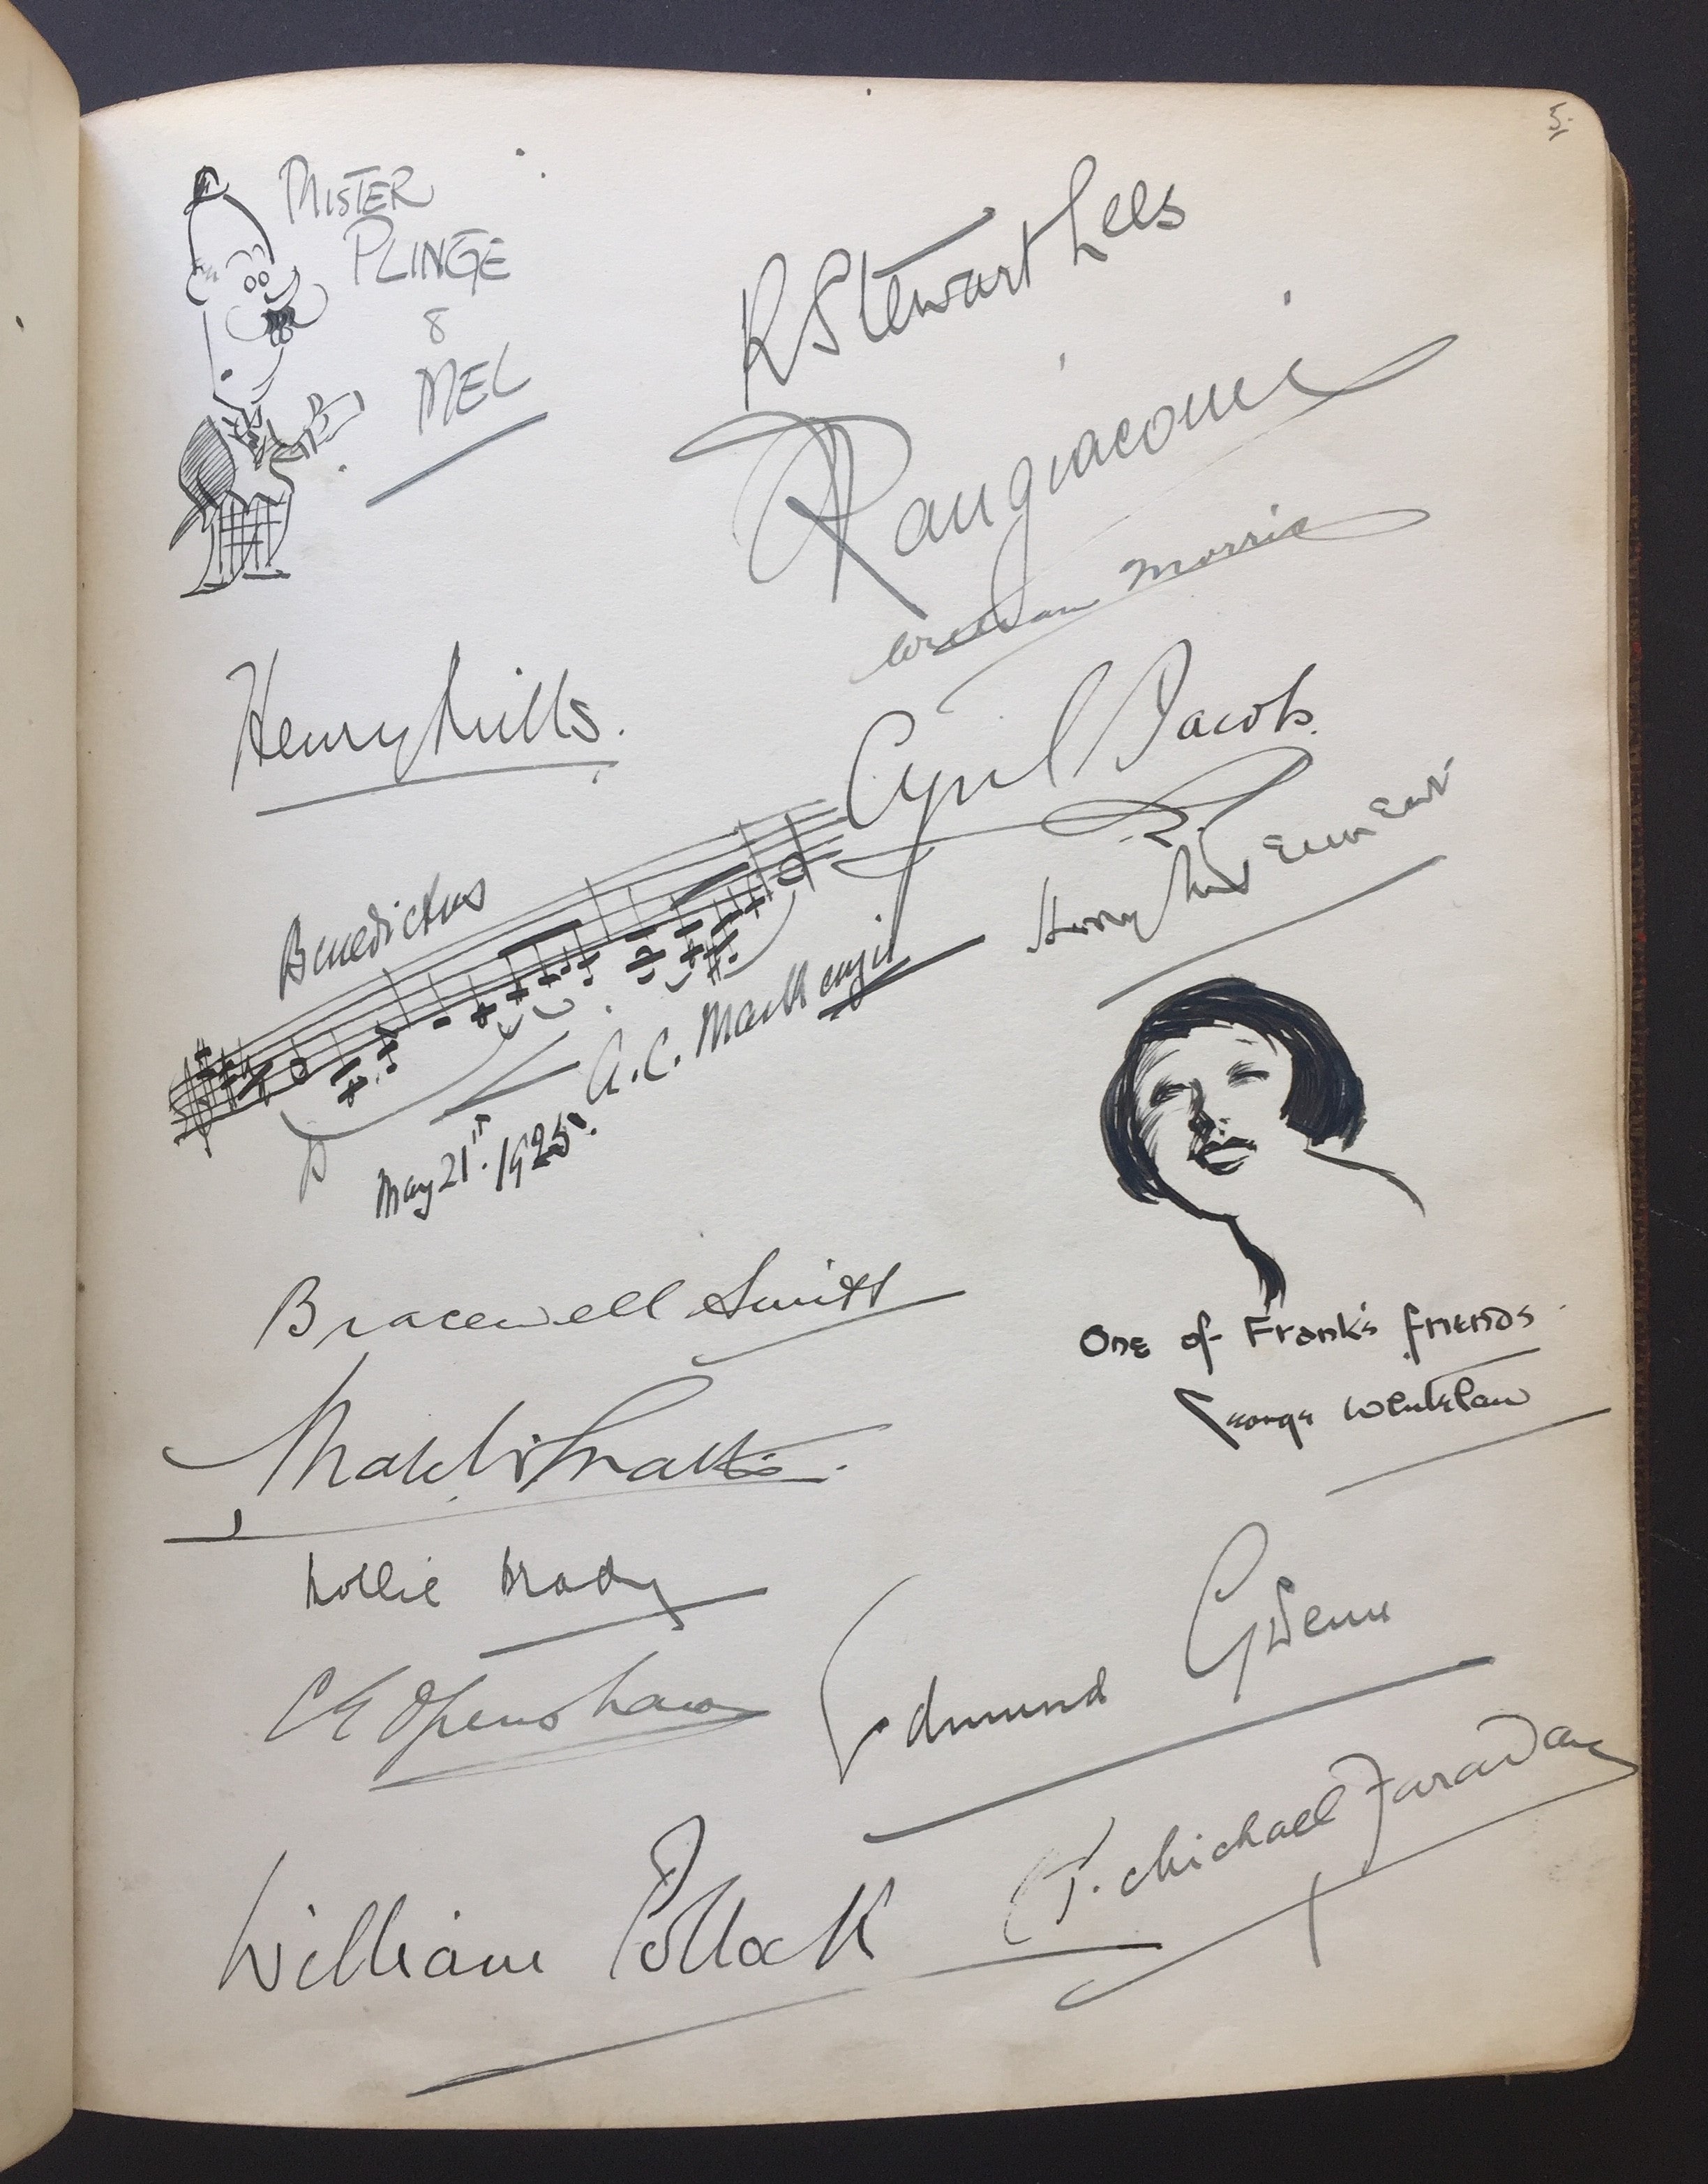 5.
MISTER
PLINGE
&
MEL
R Stewart Lees
Rangiacomi
Morris
Henry Mills.
Cyril Jacobs.
Benedictus
A. C. Mackenzie
p
May 21st. 1925.
Harry
Bracewell Smith
One of Frank's friends
George Whitelaw
Mollie Brady
C E Openshaw
Edmund Gwenn
William Pollock
T. Michael Faraday